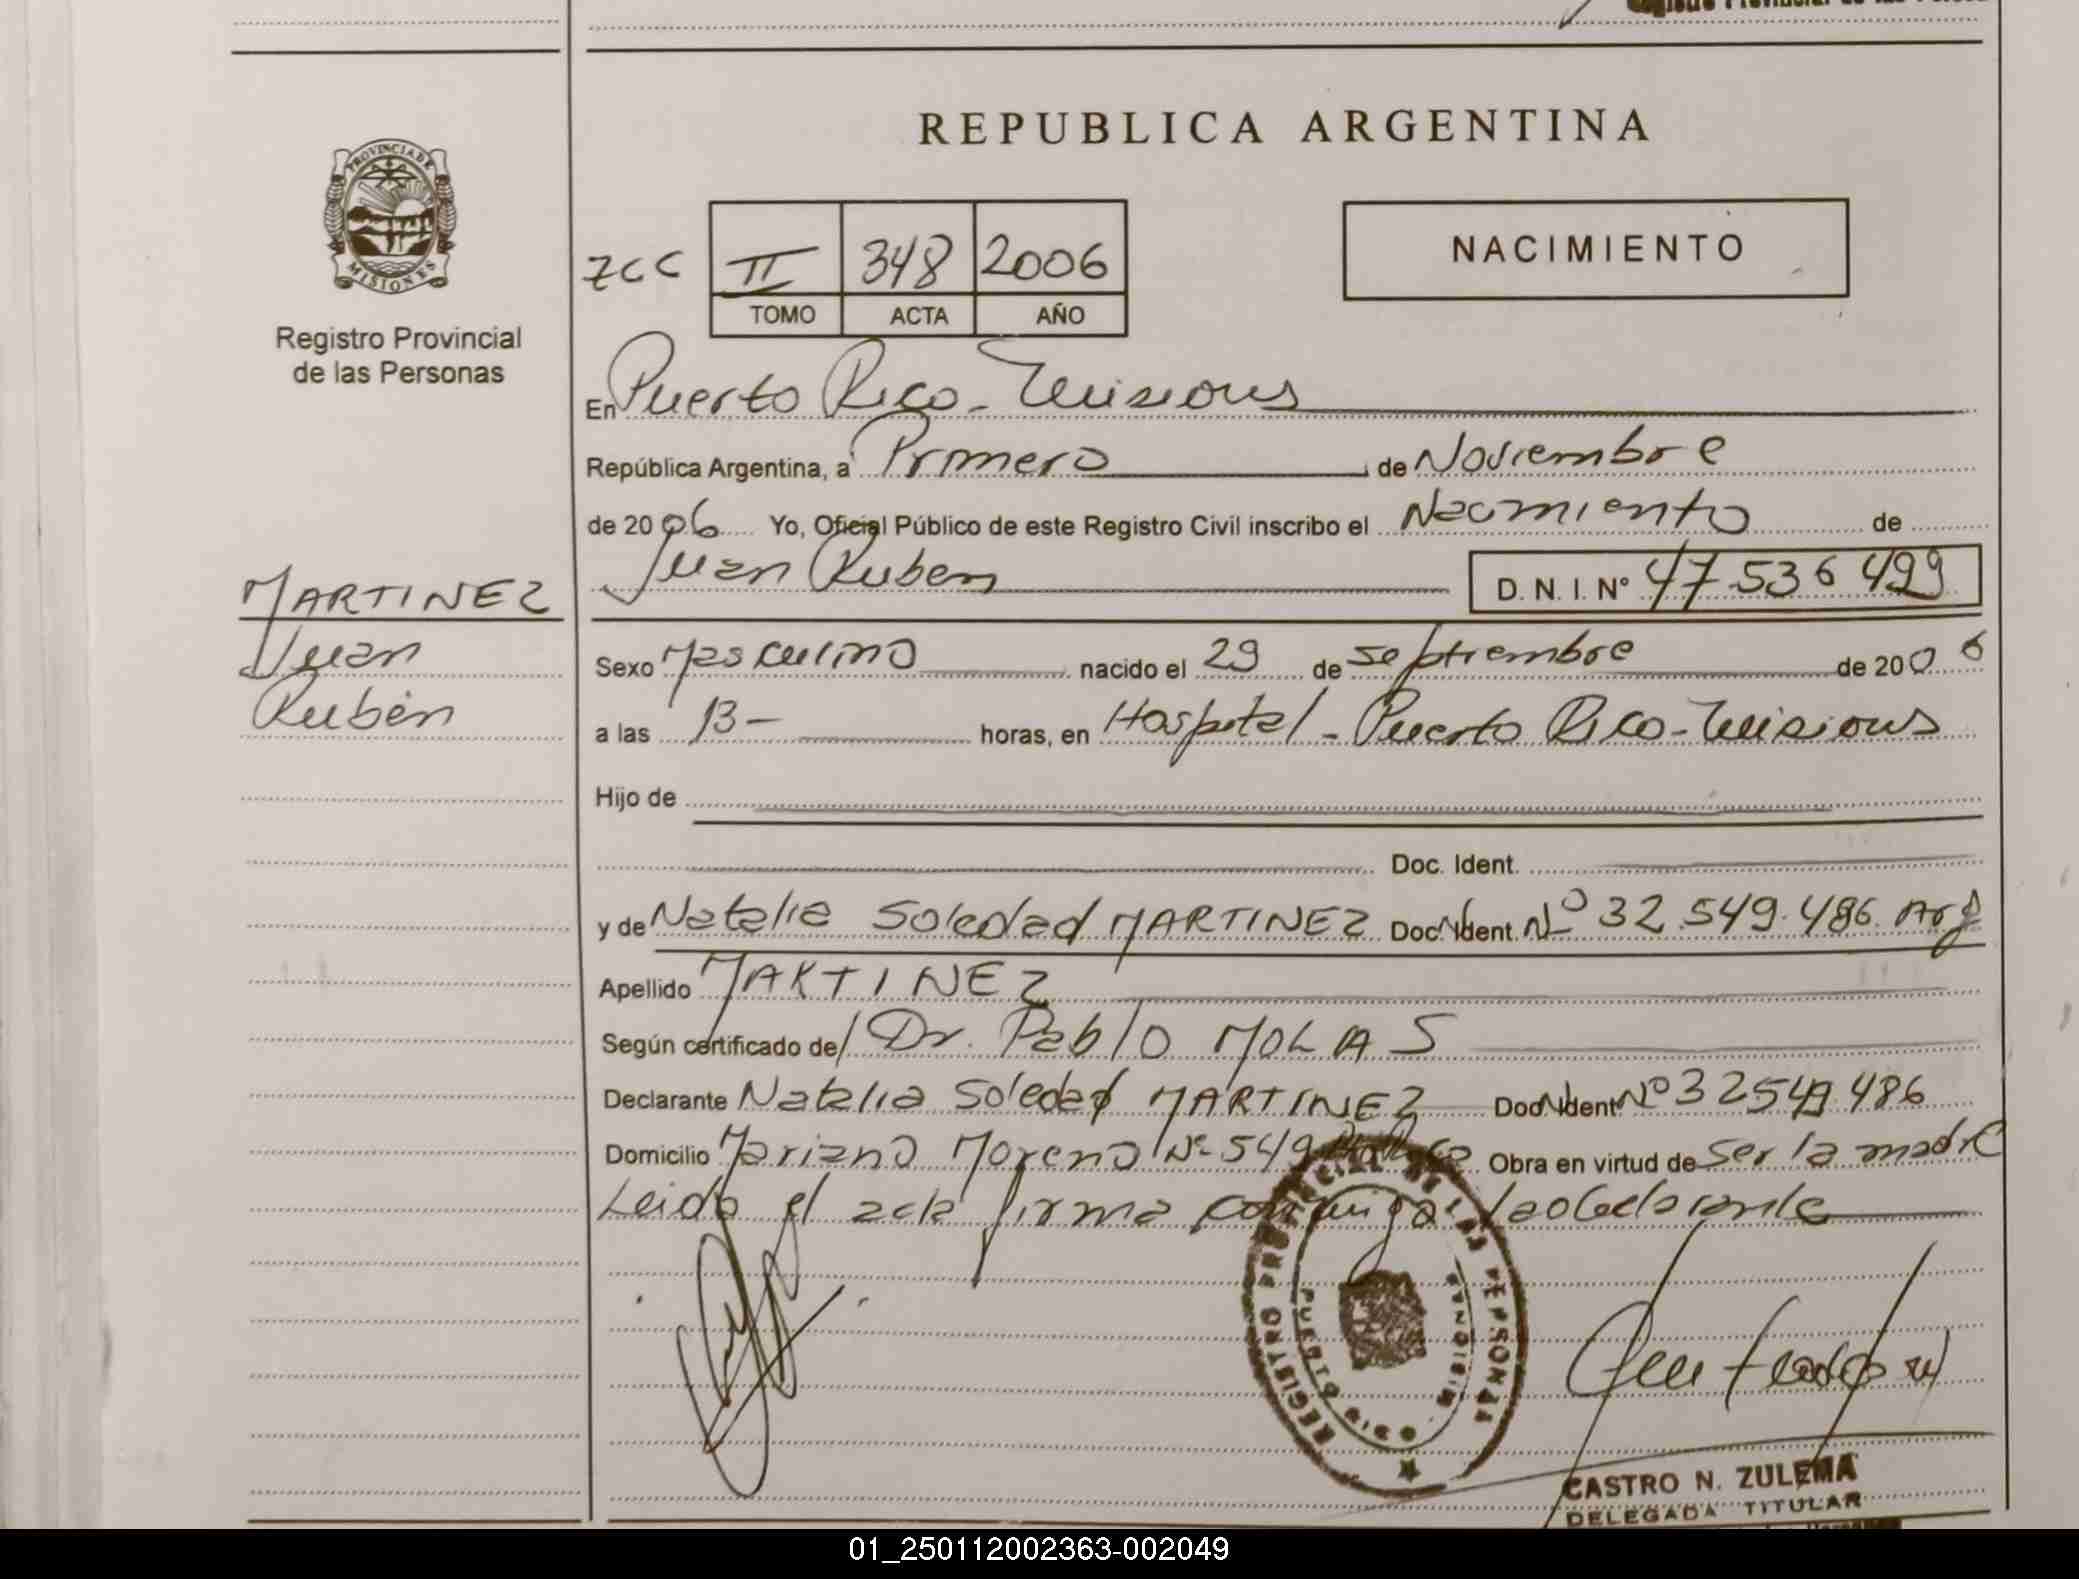 REPUBLICA ARGENTINA
PROVINCIA DE MISIONES
Registro Provincial
de las Personas
ZCC II 348 2006
TOMO ACTA AÑO
NACIMIENTO
En Puerto Rico - Misiones
República Argentina, a Primero de Noviembre
de 2006 Yo, Oficial Público de este Registro Civil inscribo el Nacimiento de
Juan Ruben D. N. I. N° 47.536.499
MARTINEZ
Juan
Rubén
Sexo Masculino nacido el 29 de Septiembre de 2006
a las 13- horas, en Hospital - Puerto Rico - Misiones
Hijo de
Doc. Ident.
y de Natalia Soledad MARTINEZ Doc. Ident. Nº 32.549.486 Arg
Apellido MARTINEZ
Según certificado de Dr. Pablo MOLAS
Declarante Natalia Soledad MARTINEZ Doc Ident Nº 32549486
Domicilio Mariano Moreno Nº 549 Obra en virtud de ser la madre
Leida el acta firma conmigo la declarante
REGISTRO PROVINCIAL DE LAS PERSONAS
PUERTO RICO MISIONES
CASTRO N. ZULEMA
DELEGADA TITULAR
01_250112002363-002049